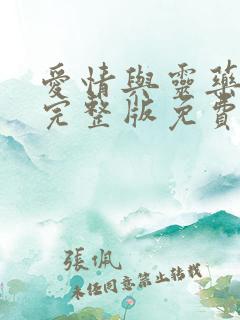 愛情與靈藥
完整版免費
張佩
未經同意禁止轉載